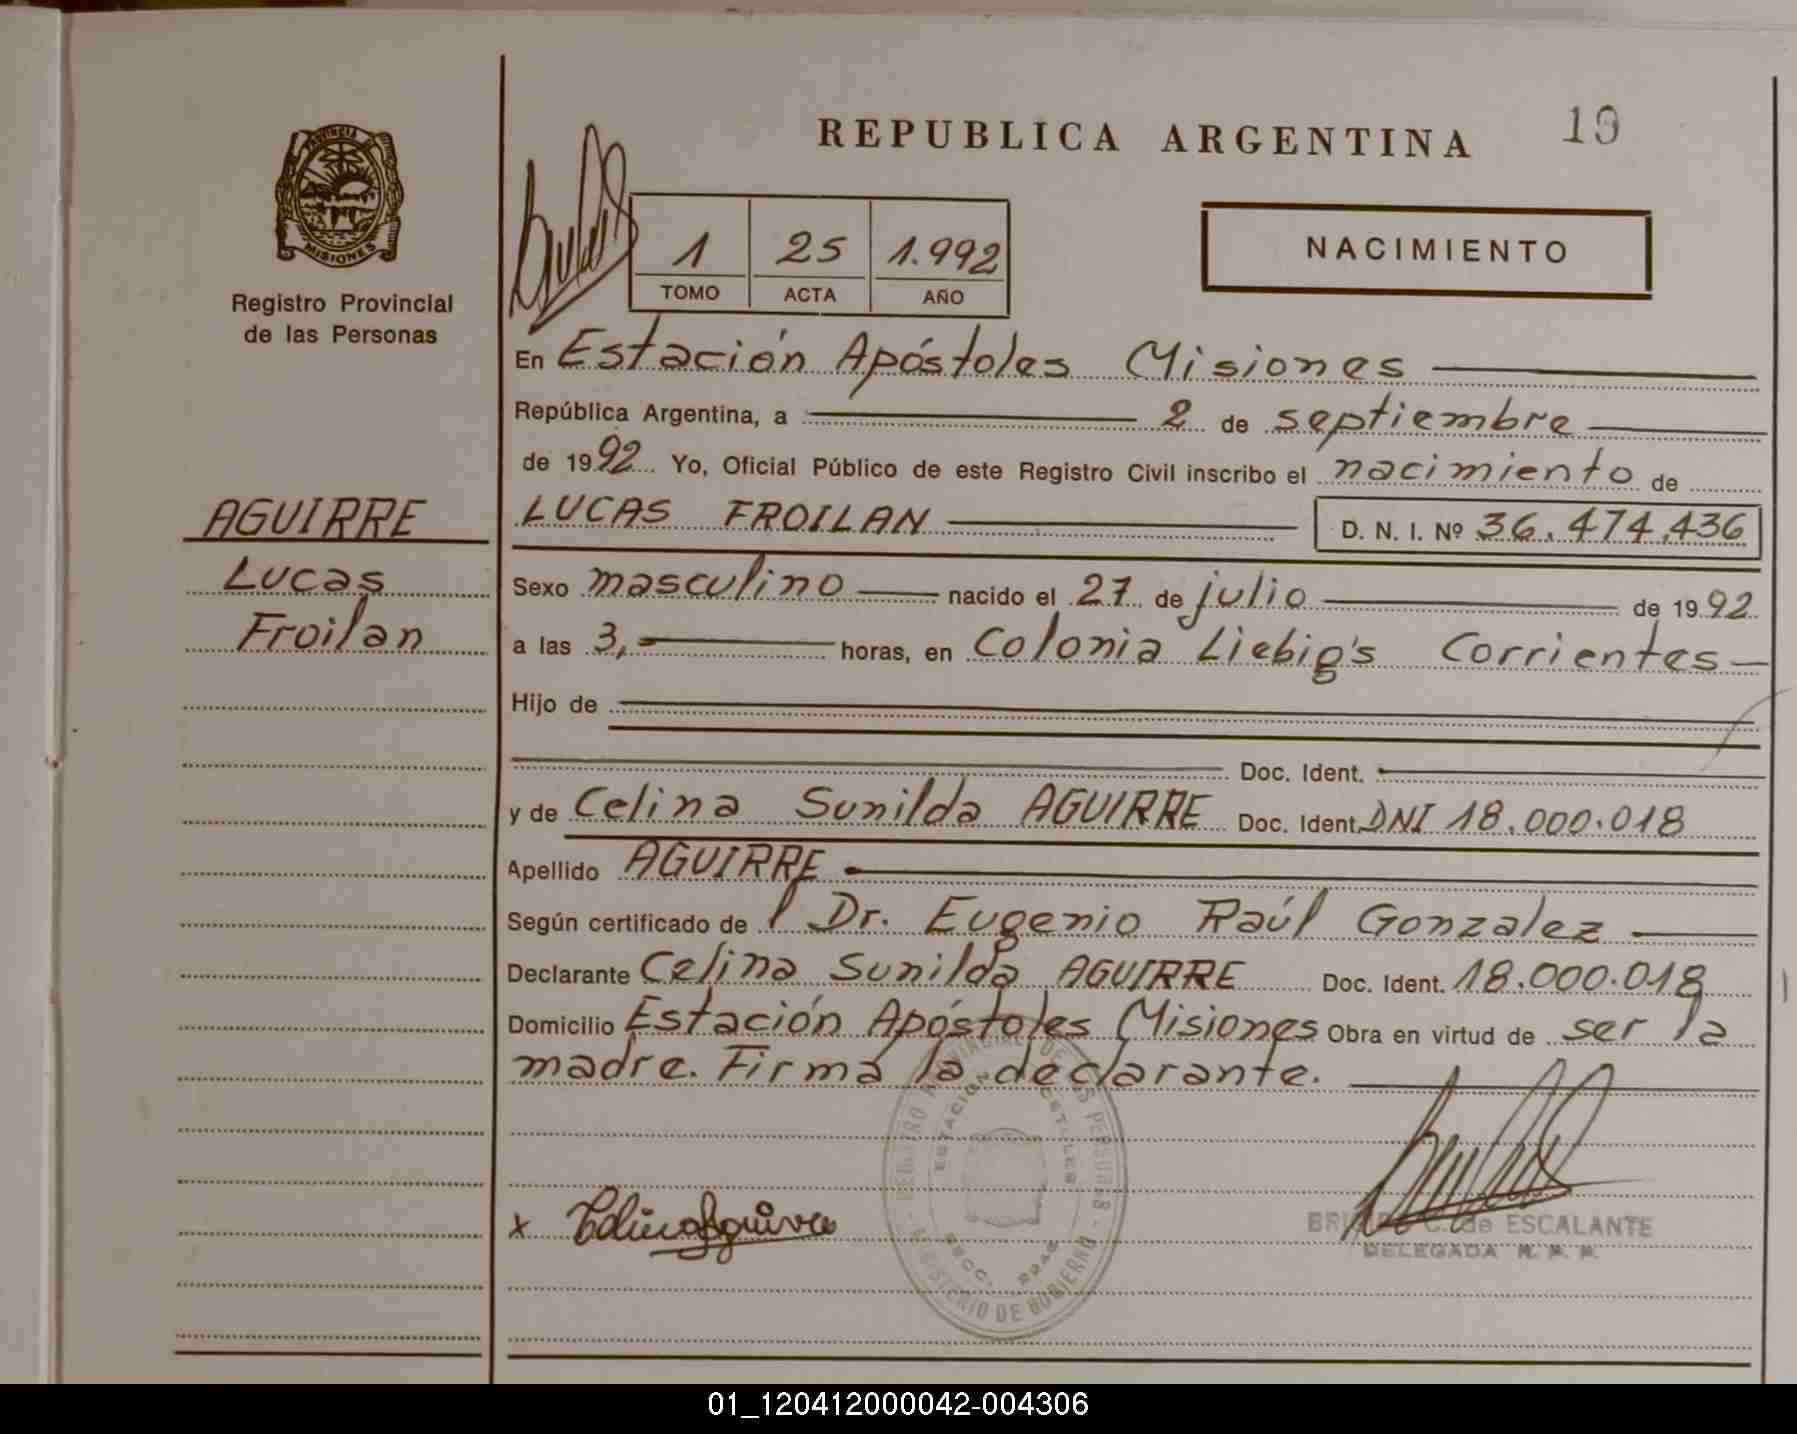 REPUBLICA ARGENTINA
19
PROVINCIA DE
MISIONES
Registro Provincial
de las Personas
1 25 1.992
TOMO ACTA AÑO
NACIMIENTO
En Estación Apóstoles Misiones
República Argentina, a 2 de septiembre
de 1992 Yo, Oficial Público de este Registro Civil inscribo el nacimiento de
AGUIRRE
Lucas
Froilan
LUCAS FROILAN D. N. I. Nº 36.474.436
Sexo masculino nacido el 27 de julio de 1992
a las 3, horas, en Colonia Liebig's Corrientes
Hijo de
Doc. Ident.
y de Celina Sunilda AGUIRRE Doc. Ident. DNI 18.000.018
Apellido AGUIRRE
Según certificado de l Dr. Eugenio Raúl Gonzalez
Declarante Celina Sunilda AGUIRRE Doc. Ident. 18.000.018
Domicilio Estación Apóstoles Misiones Obra en virtud de ser la
madre. Firma la declarante.
REGISTRO PROVINCIAL DE LAS PERSONAS
MINISTERIO DE GOBIERNO
x Celina Aguirre
C. de ESCALANTE
DELEGADA R. P. P.
01_120412000042-004306